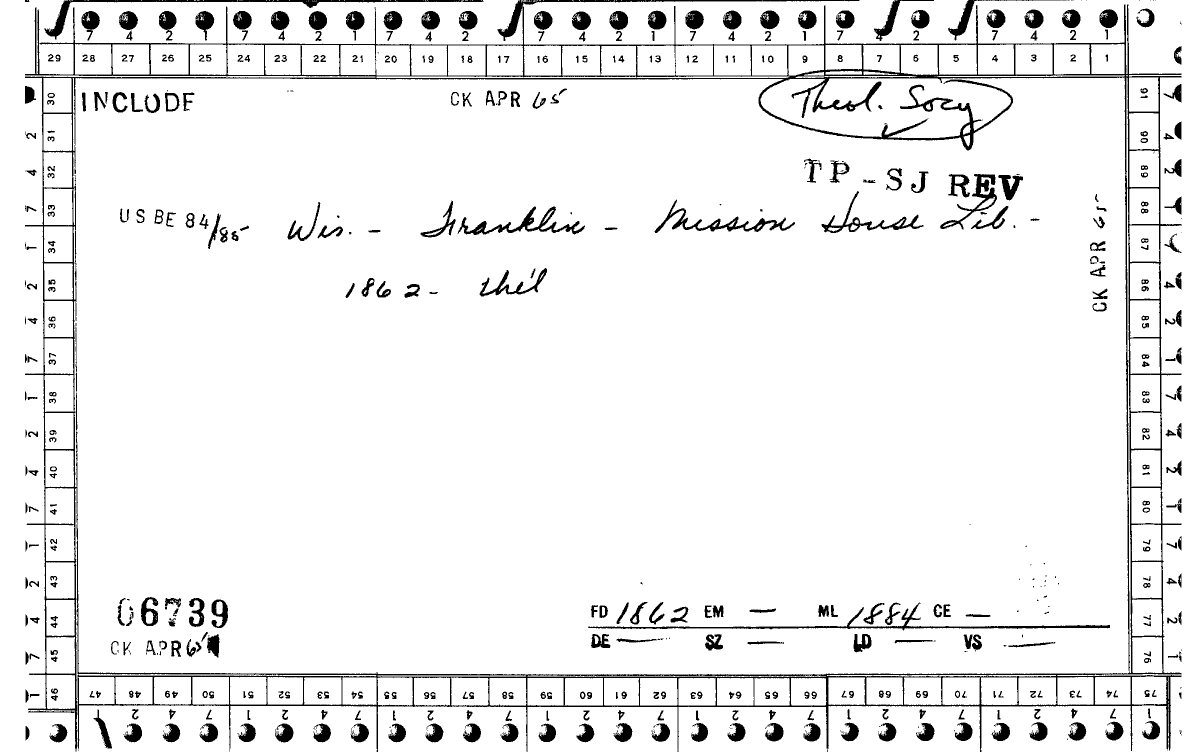 7 4 2 1 7 4 2 1 7 4 2 1 7 4 2 1 7 4 2 1 7 4 2 1 7 4 2 1
29 28 27 26 25 24 23 22 21 20 19 18 17 16 15 14 13 12 11 10 9 8 7 6 5 4 3 2 1
INCLUDE CK APR 65 Theol. Sozy
TP-SJ REV
US BE 84/185 Wis. - Franklin - Mission House Lib. -
1862 - the'l
CK APR 65
06739
CK APR 65
FD 1862 EM — ML 1884 CE —
DE — SZ — LD — VS —
30 31 32 33 34 35 36 37 38 39 40 41 42 43 44 45 46
91 90 89 88 87 86 85 84 83 82 81 80 79 78 77 76
47 48 49 50 51 52 53 54 55 56 57 58 59 60 61 62 63 64 65 66 67 68 69 70 71 72 73 74 75
1 2 4 7 1 2 4 7 1 2 4 7 1 2 4 7 1 2 4 7 1 2 4 7 1 2 4 7 1